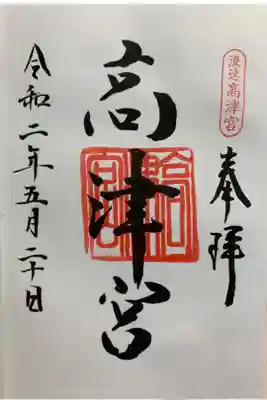 浪速高津宮
奉拝
高津宮
令和二年五月二十日